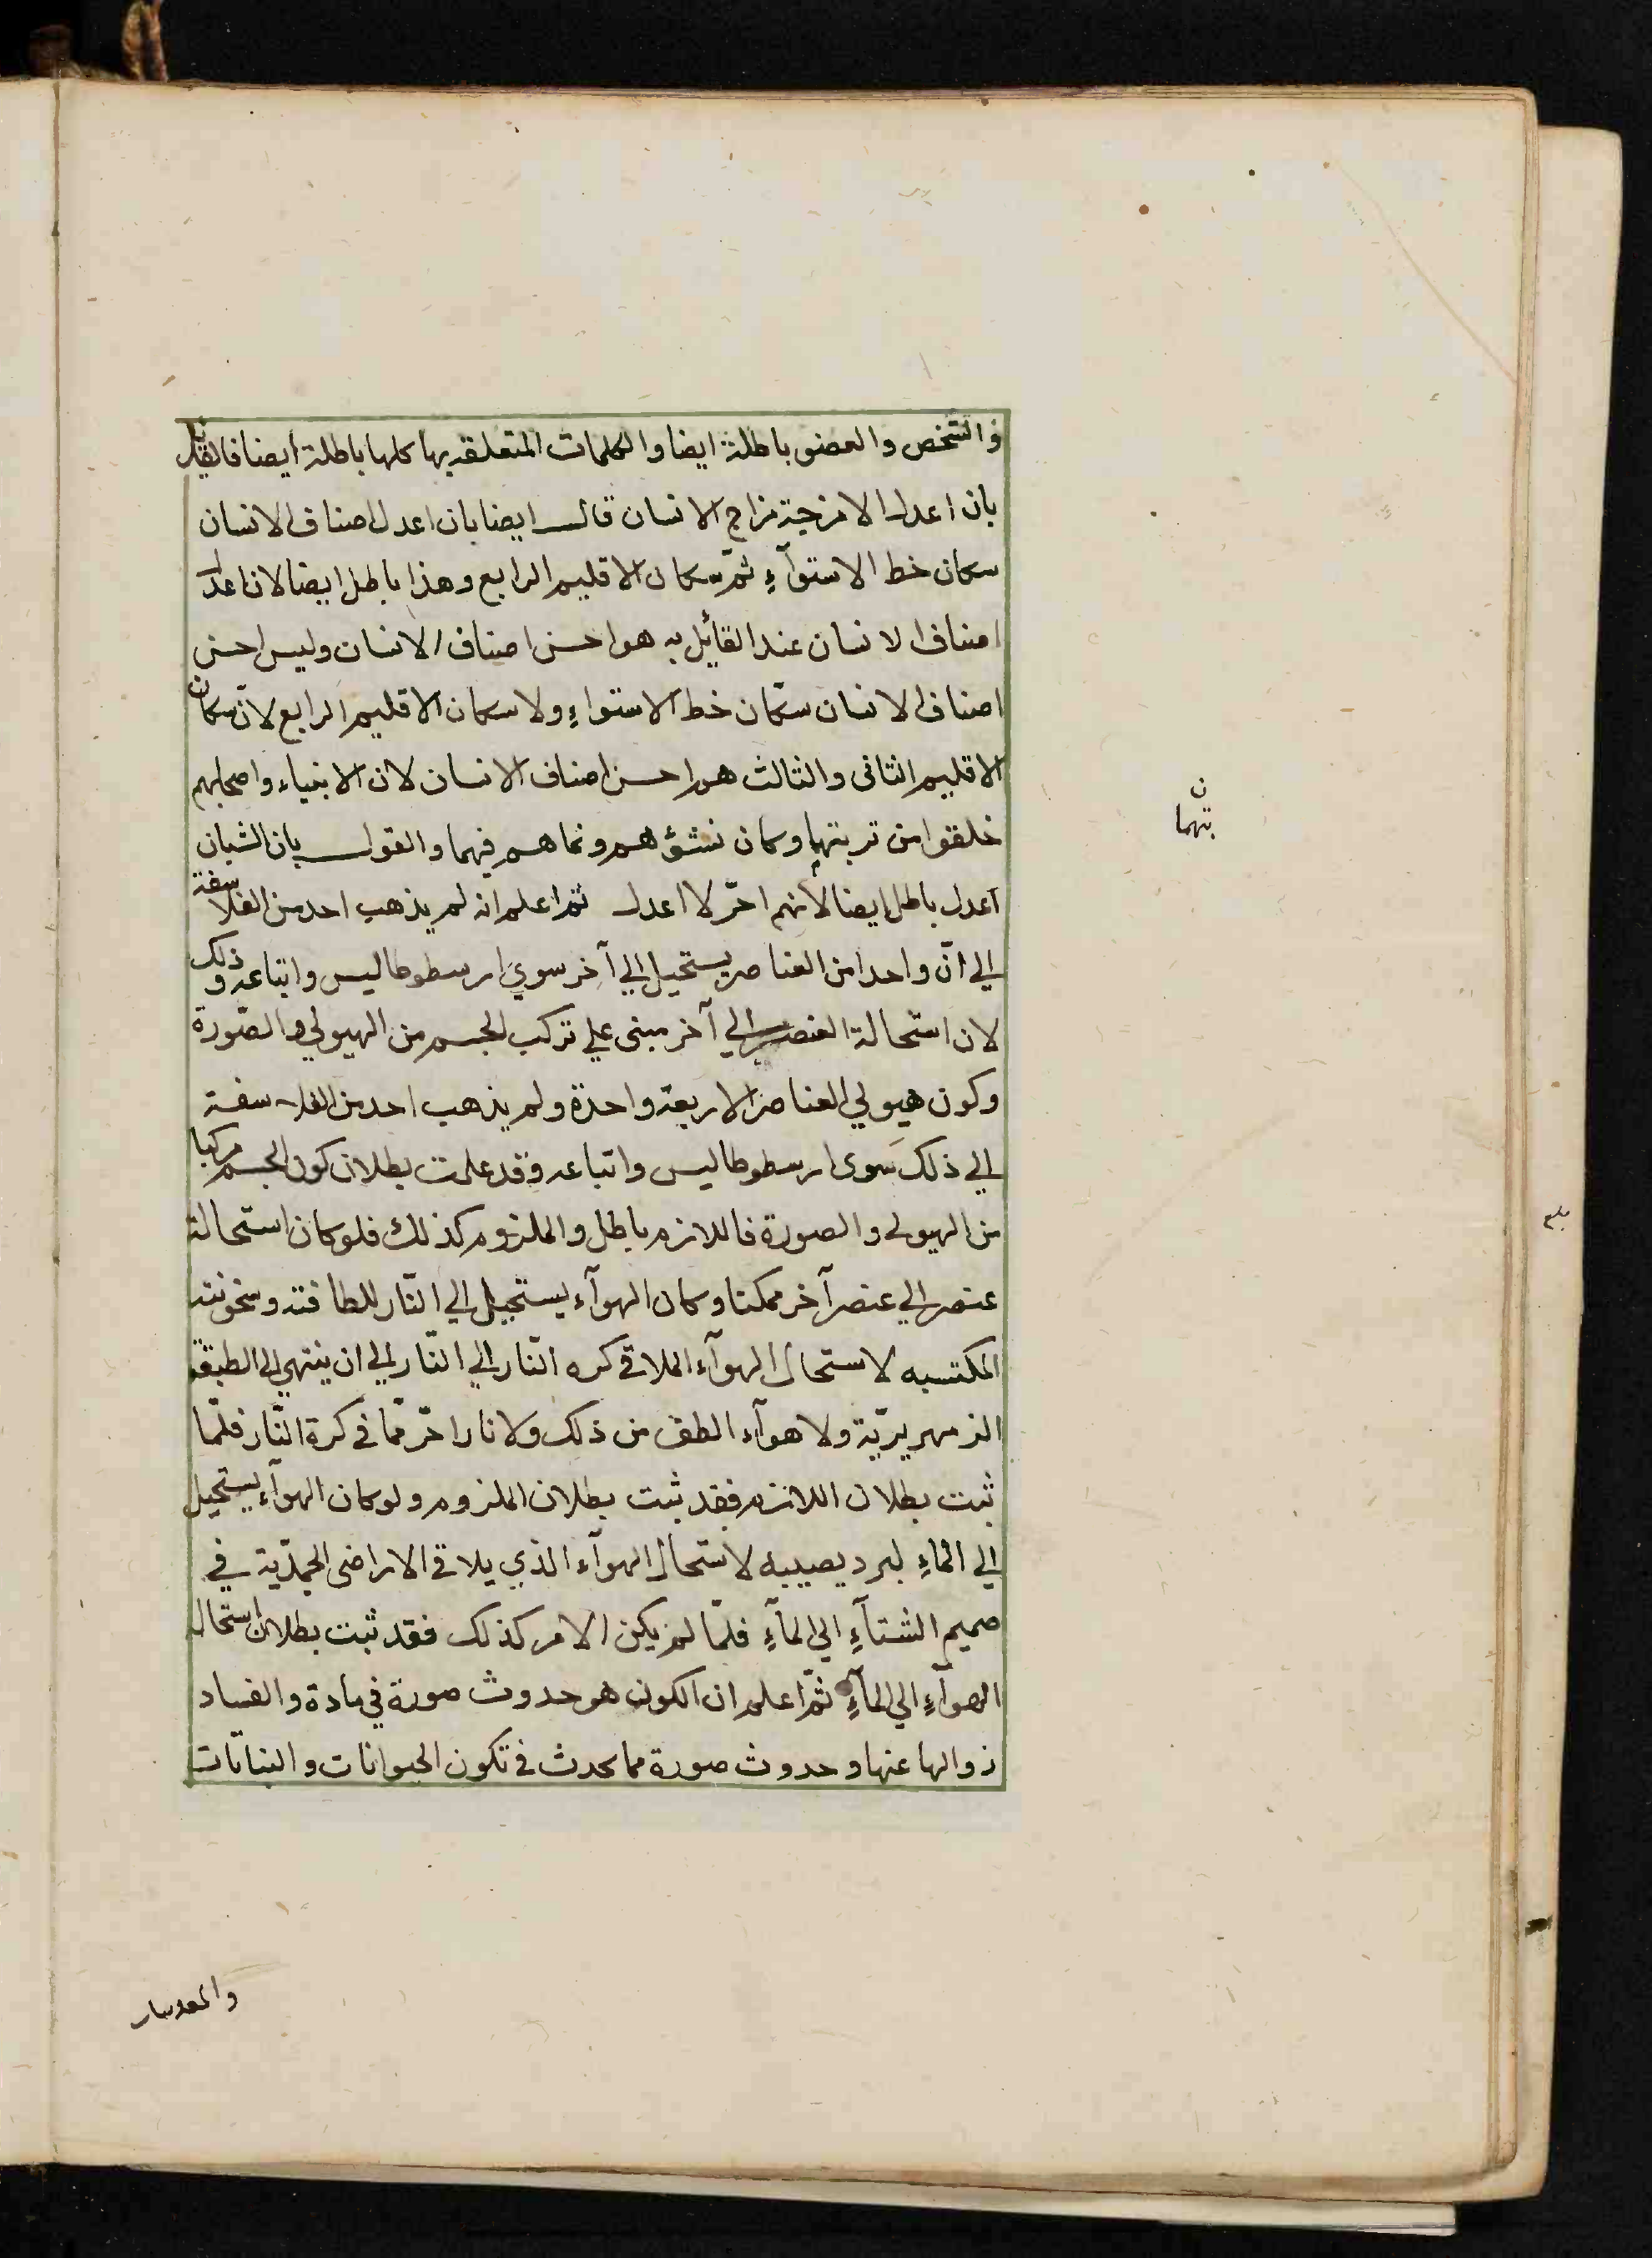 والشخص والعضو باطلة ايضا والكلمات المتعلقه بها كلها باطلة ايضا فالقايل
بان اعدل الامزجة مزاج الانسان قال ايضا بان اعدل اصناف الانسان
سكان خط الاستوآءِ ثمّ سكان الاقليم الرابع وهذا باطل ايضا لان اعدل
اصناف الانسان عند القائل به هو احسن اصناف الانسان وليس احسن
اصناف الانسان سكّان خط الاستواءِ ولا سكان الاقليم الرابع لانّ سكان
الاقليم الثانى والثالث هو احسن اصناف الانسان لان الانبياء واصحابهم
خلقوا من تربتهما وكان نشؤهم ونماهم فيهما والقول بان الشبان
اعدل باطل ايضا لانهم احرّ لا اعدل ثم اعلم انه لم يذهب احد من الفلاسفة
الي انّ واحدا من العناصر يستحيل الي آخر سوي ارسطوطاليس واتباعه وذلك
لان استحالة العنصر الي آخر مبنى علي تركب الجسم من الهيولي والصّورة
وكون هيولي العناصر الاربعة واحدة ولم يذهب احد من الفلاسفة
الي ذلك سوى ارسطوطاليس واتباعه وقد علمت بطلان كون الجسم مركبا
من الهيولى والصورة فاللازم باطل والملزوم كذلك فلو كان استحالة
عنصر الي عنصر آخر ممكنا وكان الهوآء يستحيل الي النّار للطافته وسخونته
المكتسبه لاستحال الهوآء الملاقى كره النّار الي النّار الي ان ينتهي الى الطبقة
الزمهريريّة ولا هوآء الطف من ذلك ولا نار احرّ ممّا في كرة النّار فلمّا
ثبت بطلان اللازم فقد ثبت بطلان الملزوم ولو كان الهوآء يستحيل
الي الماءِ لبرد يصيبه لاستحال الهوآء الذي يلاقى الاراضى الجمديّة في
صميم الشتآءِ الي المآءِ فلمّا لم يكن الامر كذلك فقد ثبت بطلان استحالة
الهوآءِ الي المآءِ ثمّ اعلم ان الكون هو حدوث صورة في مادة والفساد
زوالها عنها وحدوث صورة مما يحدث في تكون الحيوانات والنباتات
ن
بتهما